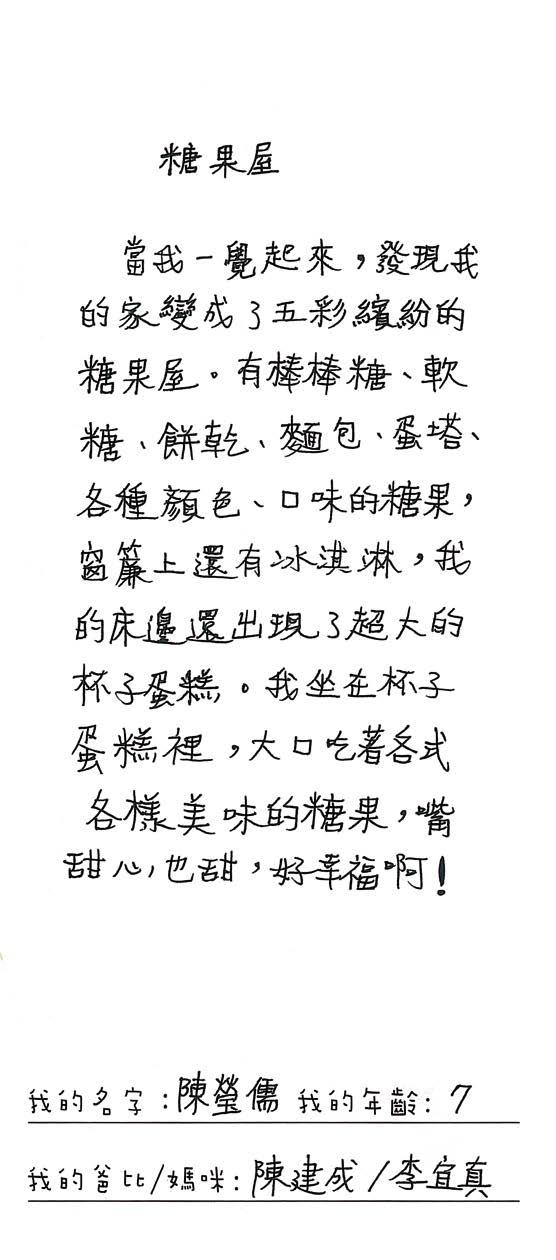 糖果屋
當我一覺起來，發現我
的家變成了五彩繽紛的
糖果屋。有棒棒糖、軟
糖、餅乾、麵包、蛋塔、
各種顏色、口味的糖果，
窗簾上還有冰淇淋，我
的床邊還出現了超大的
杯子蛋糕。我坐在杯子
蛋糕裡，大口吃著各式
各樣美味的糖果，嘴
甜心也甜，好幸福啊！
我的名字：陳瑩儒 我的年齡：7
我的爸比/媽咪：陳建成/李宜真